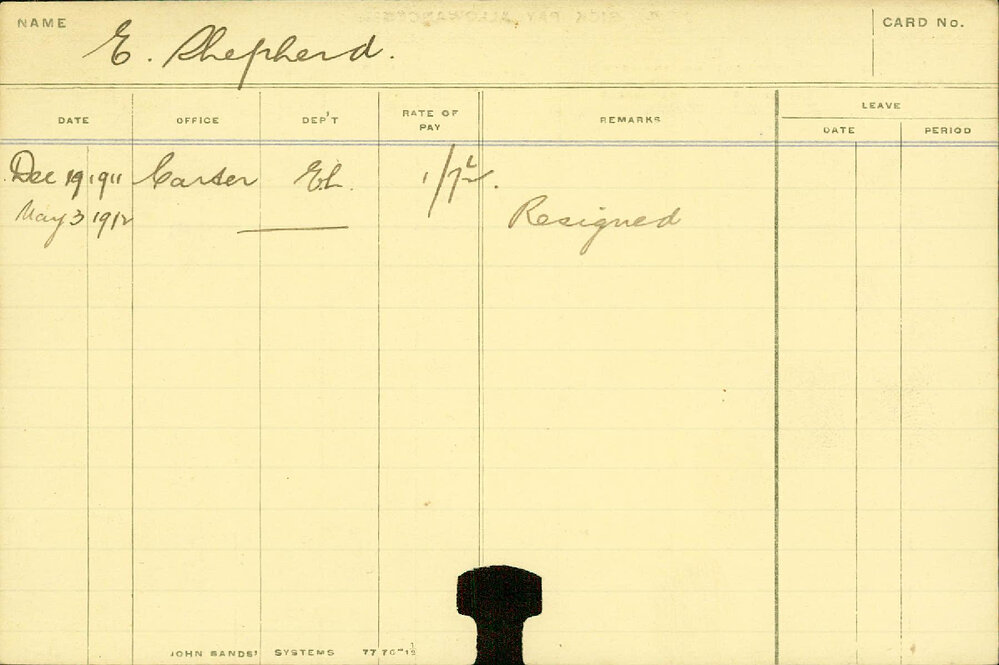 NAME E. Shepherd. CARD No.
LEAVE
DATE OFFICE DEP'T RATE OF PAY REMARKS DATE PERIOD
Dec 19 1911 Carter EL. 1/7½.
May 3 1912 Resigned
JOHN SANDS' SYSTEMS